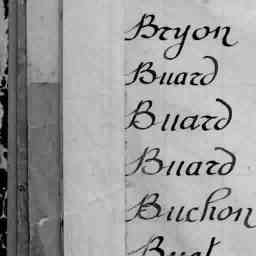 Bryon
Buard
Buard
Buard
Buchon